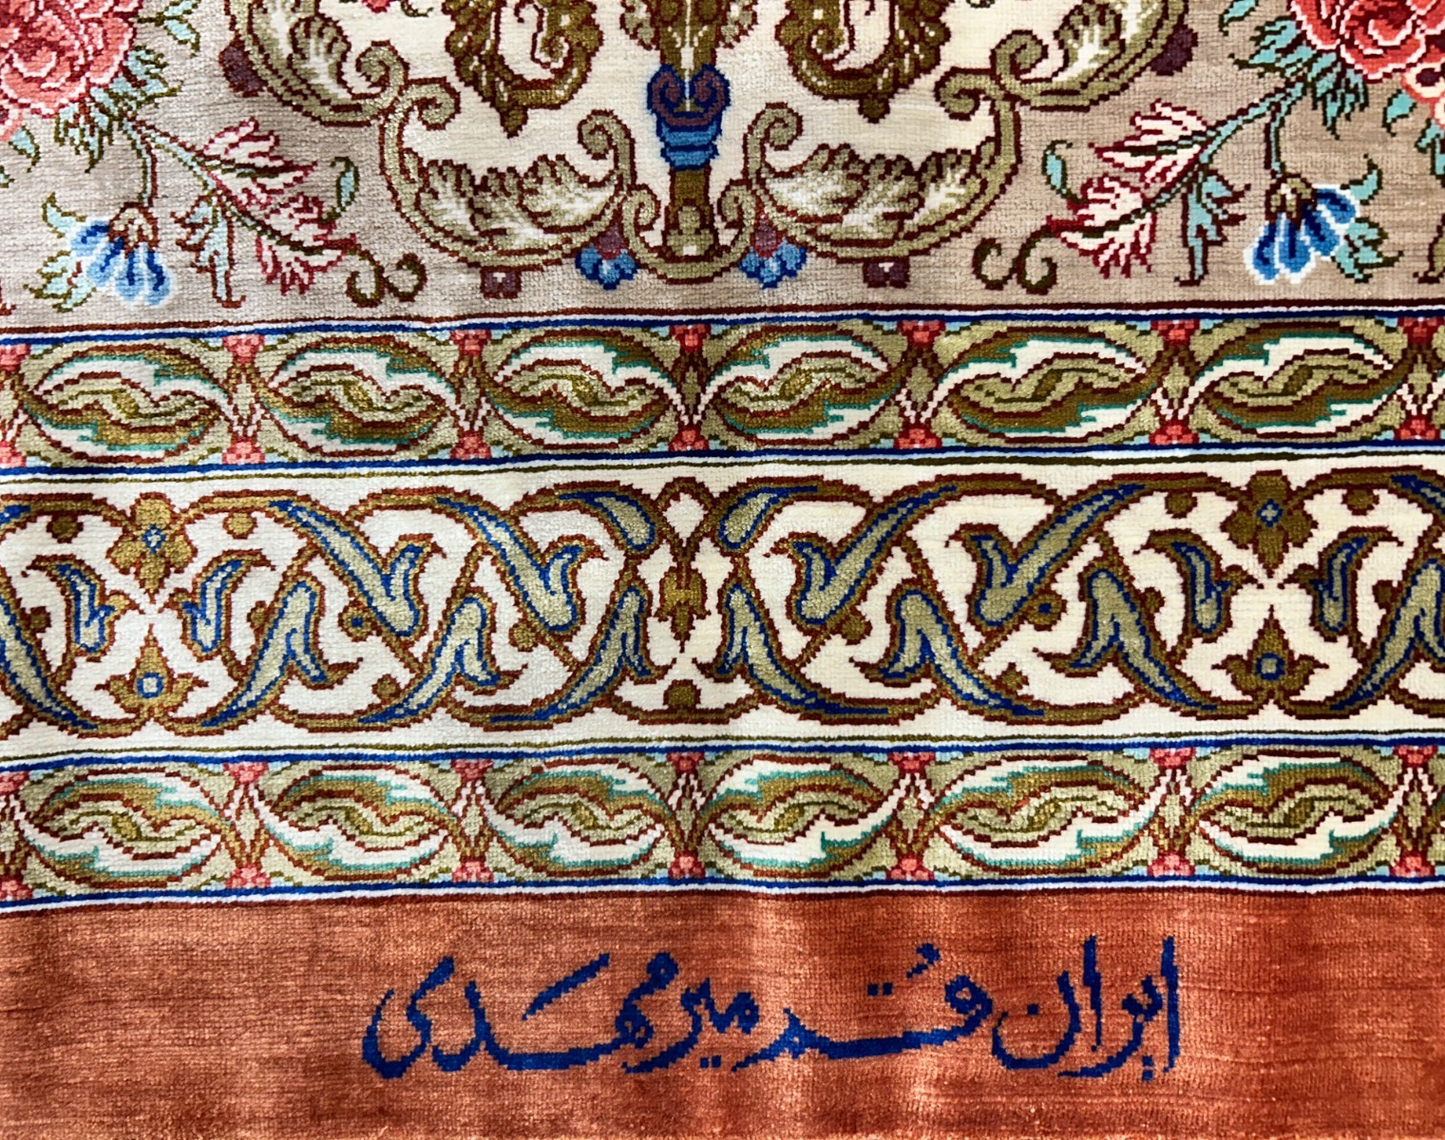 ایران قُم میرمهدی